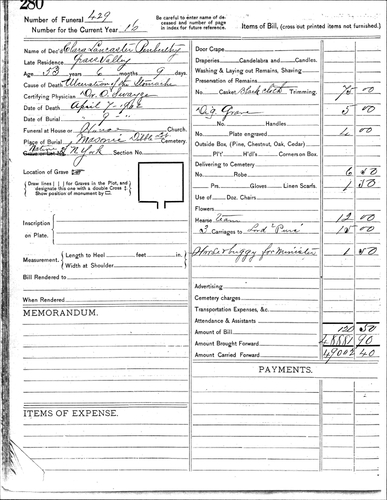 280
Number of Funeral 429
Number for the Current Year 16
Be careful to enter name of deceased and number of page in index for future reference.
Name of Dec'd Clara Lancaster
Late Residence Grass Valley
Age 53 years 6 months 9 days.
Cause of Death Ulceration of the Stomach
Certifying Physician Dr. O.
Date of Death April 7
Date of Burial " 9 "
Funeral at House or Church.
Place of Burial Masonic Cemetery
N. York Section No.
Location of Grave
Draw lines for Graves in the Plot, and designate this one with a double Cross
Show position of monument by
Inscription on Plate.
Measurement. Length to Heel feet in.
Width at Shoulder
Bill Rendered to
When Rendered
MEMORANDUM.
ITEMS OF EXPENSE.
Items of Bill, (cross out printed items not furnished.)
Door Crape
Draperies, Candelabra and Candles.
Washing & Laying out Remains, Shaving
Preservation of Remains
No. Casket Black Cloth Trimming. 75 00
Grave 5 00
No. Handles
No. Plate engraved 4 00
Outside Box, (Pine, Chestnut, Oak, Cedar)
PIY. W'd's Corners on Box.
Delivering to
No. Robe 6 50
Prs. Gloves Linen Scarfs. 1 50
Use of Doz. Chairs
Flowers
Hearse Team 12 00
3 Carriages to 15 00
Horse & buggy for Minister 1 50
Advertising
Cemetery charges
Transportation Expenses, &c.
Attendance & Assistants
Amount of Bill 120 50
Amount Brought Forward 48881 90
Amount Carried Forward 49002 40
PAYMENTS.